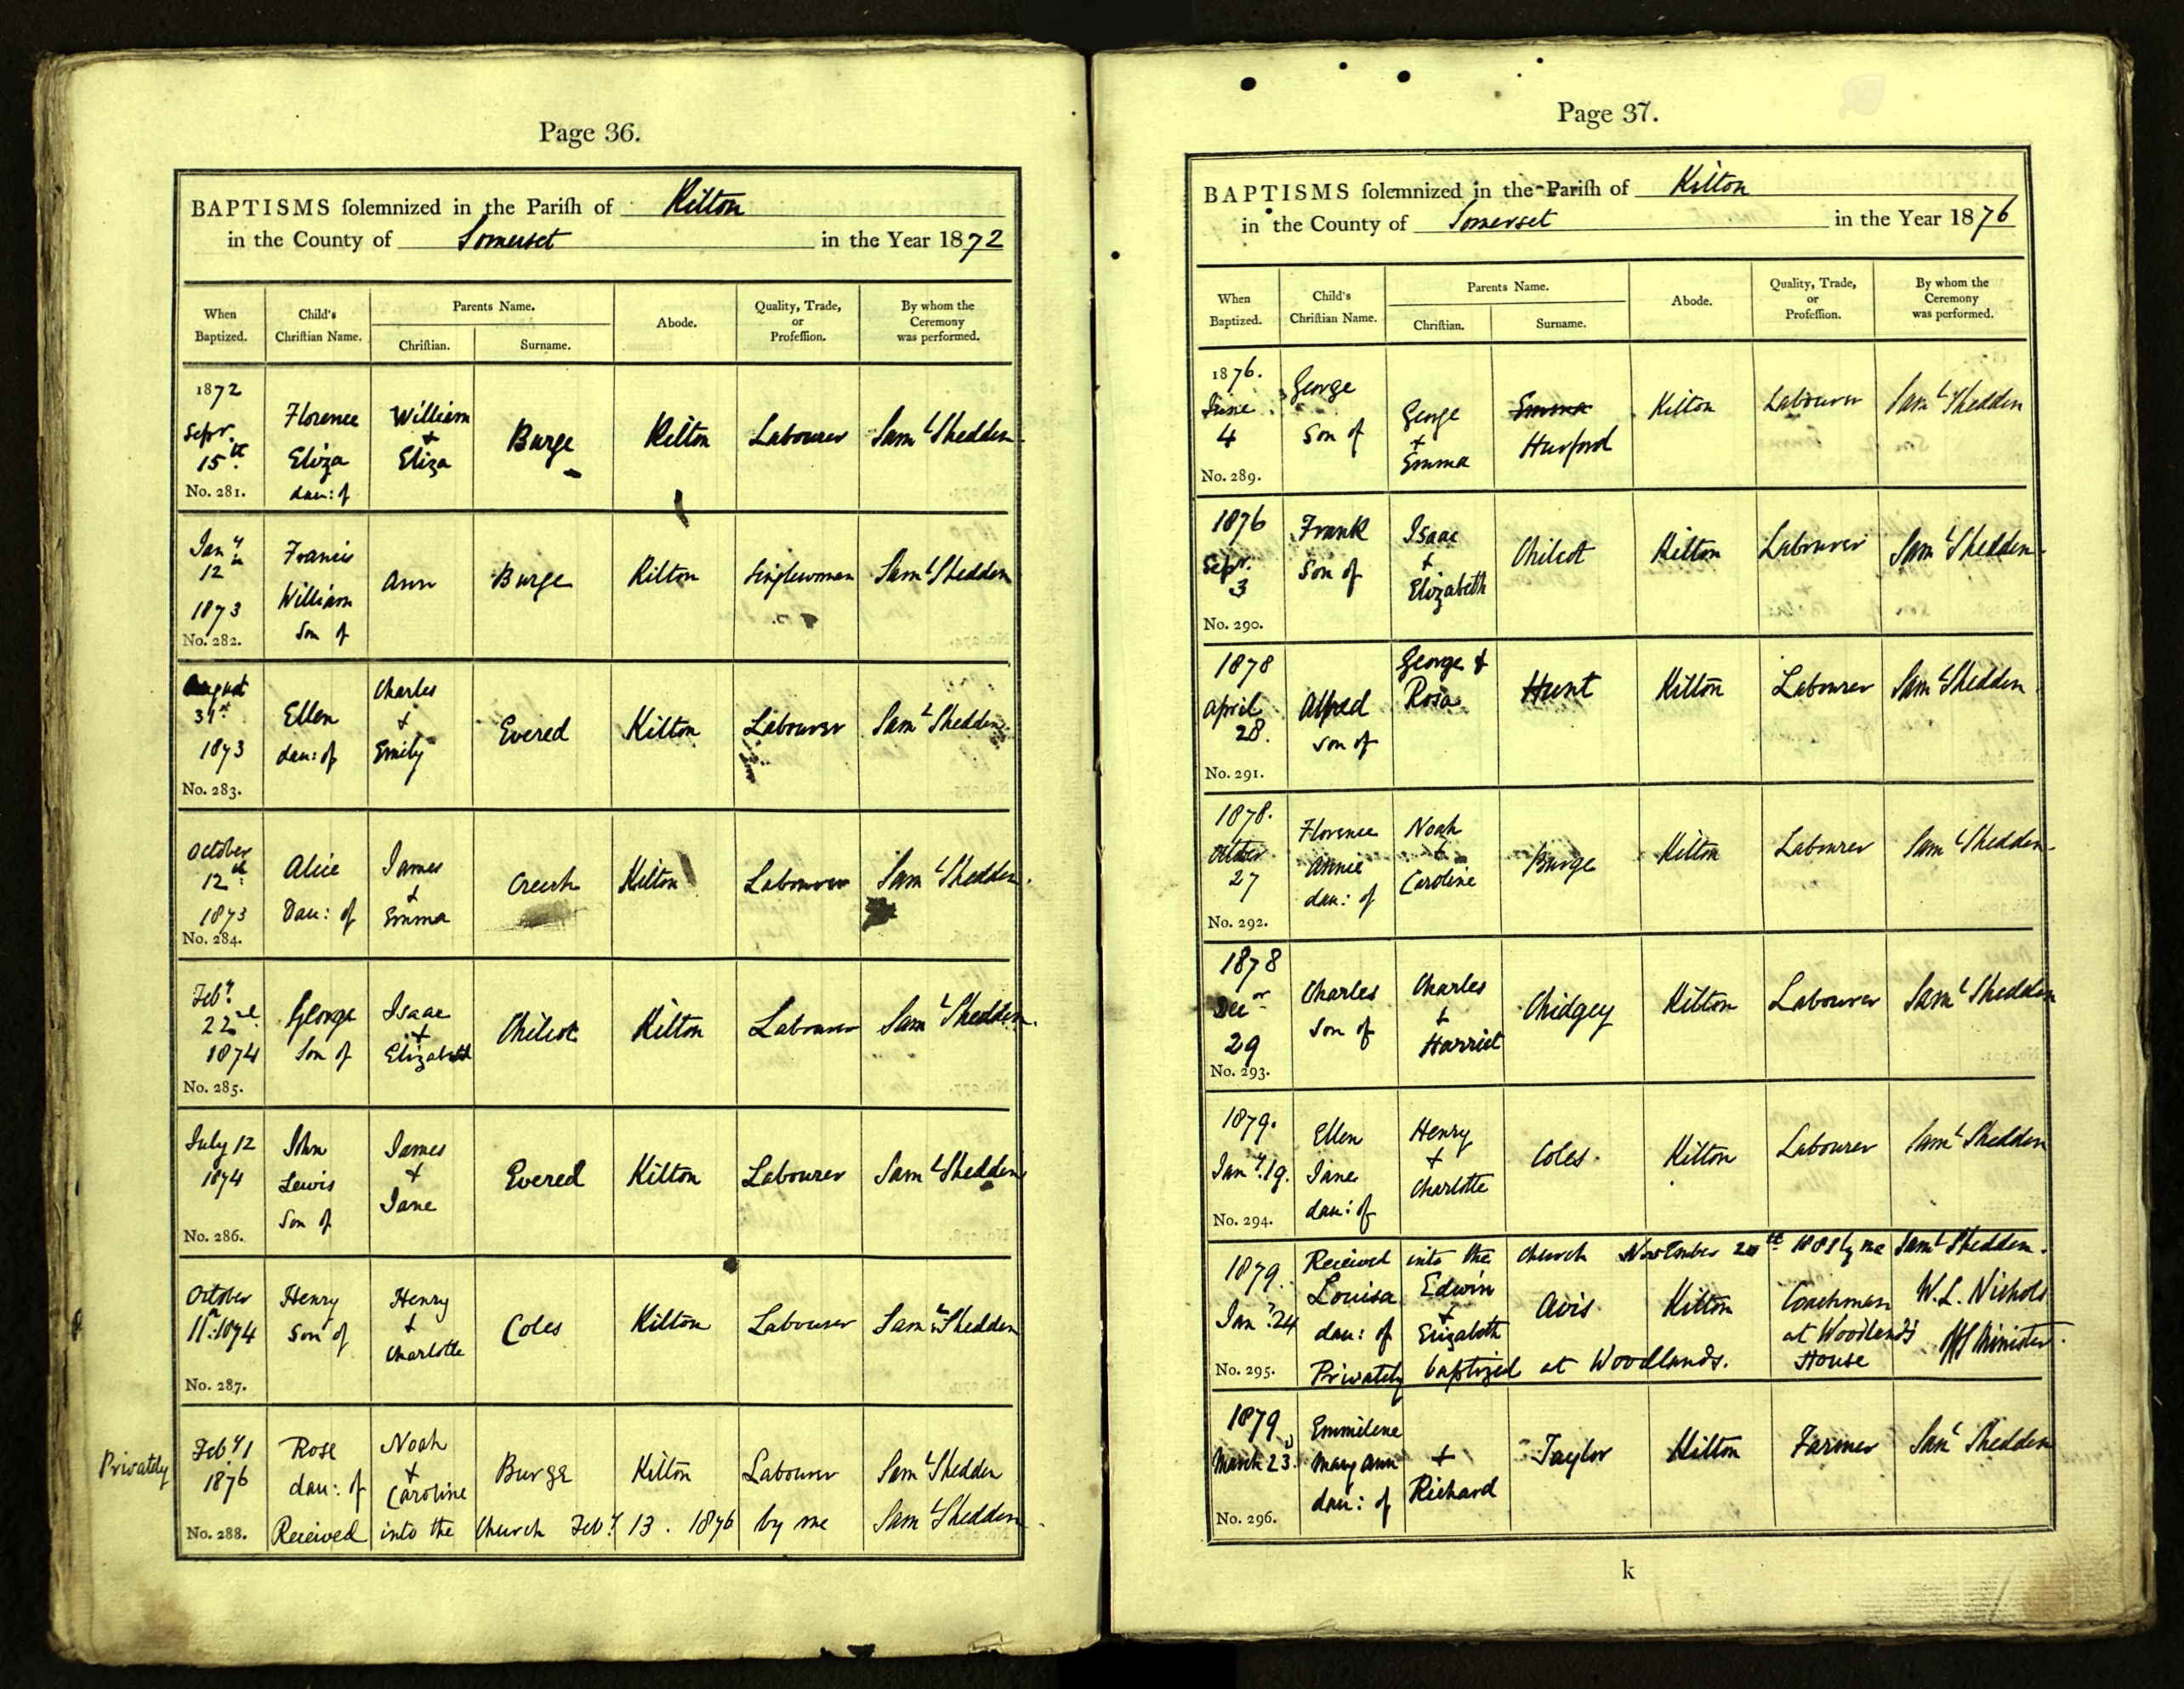 Page 36.
BAPTISMS solemnized in the Parish of Kilton
in the County of Somerset in the Year 1872
When Baptized. Child's Christian Name. Parents Name. Christian. Surname. Abode. Quality, Trade, or Profession. By whom the Ceremony was performed.
1872 Septr. 15th No. 281. Florence Eliza dau: of William + Eliza Burge Kilton Labourer Saml Shedden
Jany 12 1873 No. 282. Francis William Son of Ann Burge Kilton Singlewoman Saml Shedden
August 31st 1873 No. 283. Ellen dau: of Charles + Emily Evered Kilton Labourer Saml Shedden
October 12th 1873 No. 284. Alice Dau: of James + Emma Creech Kilton Labourer Saml Shedden
Feby 22nd 1874 No. 285. George Son of Isaac + Elizabeth Chilcot Kilton Labourer Saml Shedden
July 12 1874 No. 286. John Lewis Son of James + Jane Evered Kilton Labourer Saml Shedden
October 11th 1874 No. 287. Henry Son of Henry + Charlotte Coles Kilton Labourer Saml Shedden
Privately Feby 1 1876 No. 288. Rose dau: of Noah + Caroline Burge Kilton Labourer Saml Shedden
Received into the Church Feby 13. 1876 by me Saml Shedden
Page 37.
BAPTISMS solemnized in the Parish of Kilton
in the County of Somerset in the Year 1876
When Baptized. Child's Christian Name. Parents Name. Christian. Surname. Abode. Quality, Trade, or Profession. By whom the Ceremony was performed.
1876. June 4 No. 289. George Son of George + Emma Emma Hurford Kilton Labourer Saml Shedden
1876 Sepr. 3 No. 290. Frank Son of Isaac + Elizabeth Chilcot Kilton Labourer Saml Shedden
1878 April 28. No. 291. Alfred Son of George + Rosa Hunt Kilton Labourer Saml Shedden
1878. October 27 No. 292. Florence Annie dau: of Noah + Caroline Burge Kilton Labourer Saml Shedden
1878 Decr 29 No. 293. Charles Son of Charles + Harriet Chidgey Kilton Labourer Saml Shedden
1879. Jany. 19. No. 294. Ellen Jane dau: of Henry + Charlotte Coles Kilton Labourer Saml Shedden
Received into the Church November th 1881 by me Saml Shedden.
1879. Jany. 24 No. 295. Louisa dau: of Edwin + Elizabeth Avis Kilton Coachman at Woodlands House W. L. Nichols Off Minister.
Privately baptized at Woodlands.
1879 March 23. No. 296. Emmilene Mary Ann dau: of + Richard Taylor Kilton Farmer Saml Shedden
k